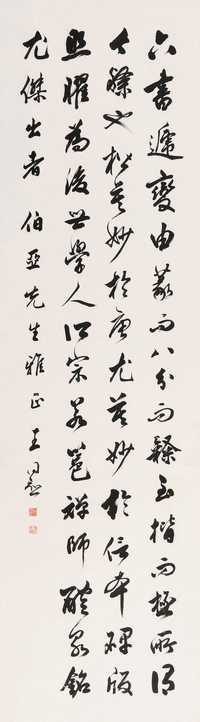 六書遞變由篆而八分而隸至楷而極所謂
今隸也楷莫妙於唐尤莫妙於信本碑版
照耀為後世學人所宗若邕禪師醴泉銘
尤傑出者 伯亞先生雅正 王同愈